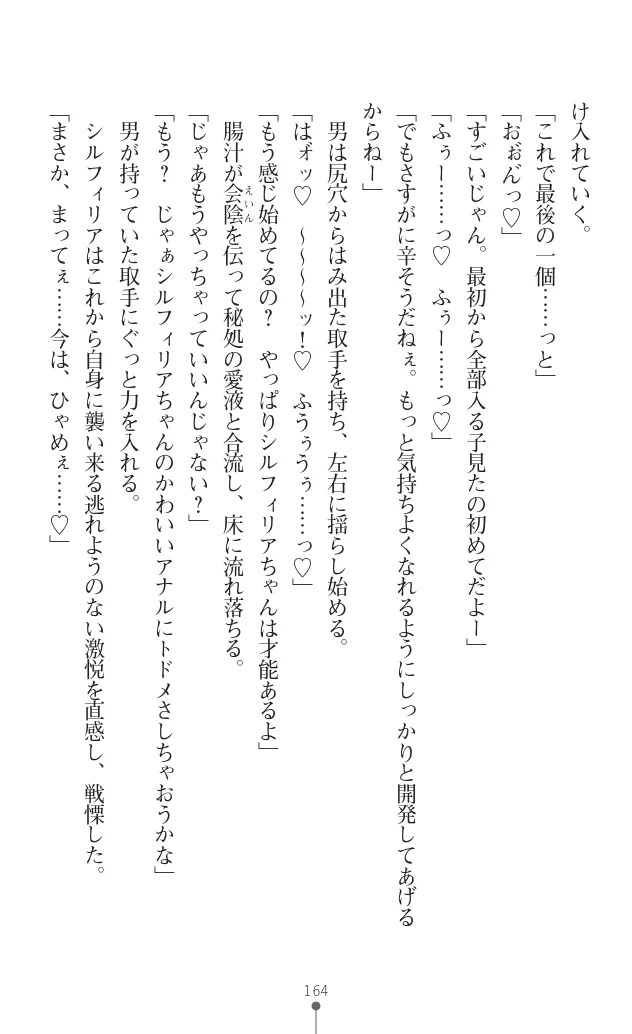 け入れていく。
「これで最後の一個……っと」
「おぉ゛んっ♡」
「すごいじゃん。最初から全部入る子見たの初めてだよー」
「ふぅー……っ♡　ふぅー……っ♡」
「でもさすがに辛そうだねぇ。もっと気持ちよくなれるようにしっかりと開発してあげる
からねー」
男は尻穴からはみ出た取手を持ち、左右に揺らし始める。
「はォ゛ッ♡　～～～～ッ！♡　ふうぅうぅ……っ♡」
「もう感じ始めてるの？　やっぱりシルフィリアちゃんは才能あるよ」
腸汁が会陰を伝って秘処の愛液と合流し、床に流れ落ちる。
えいん
「じゃあもうやっちゃっていいんじゃない？」
「もう？　じゃぁシルフィリアちゃんのかわいいアナルにトドメさしちゃおうかな」
男が持っていた取手にぐっと力を入れる。
シルフィリアはこれから自身に襲い来る逃れようのない激悦を直感し、戦慄した。
「まさか、まってぇ……今は、ひゃめぇ……♡」
164